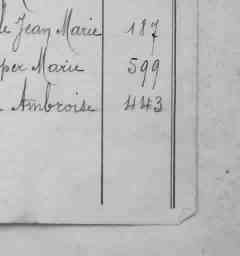 le Jean Marie 187
per Marie 599
Ambroise 443